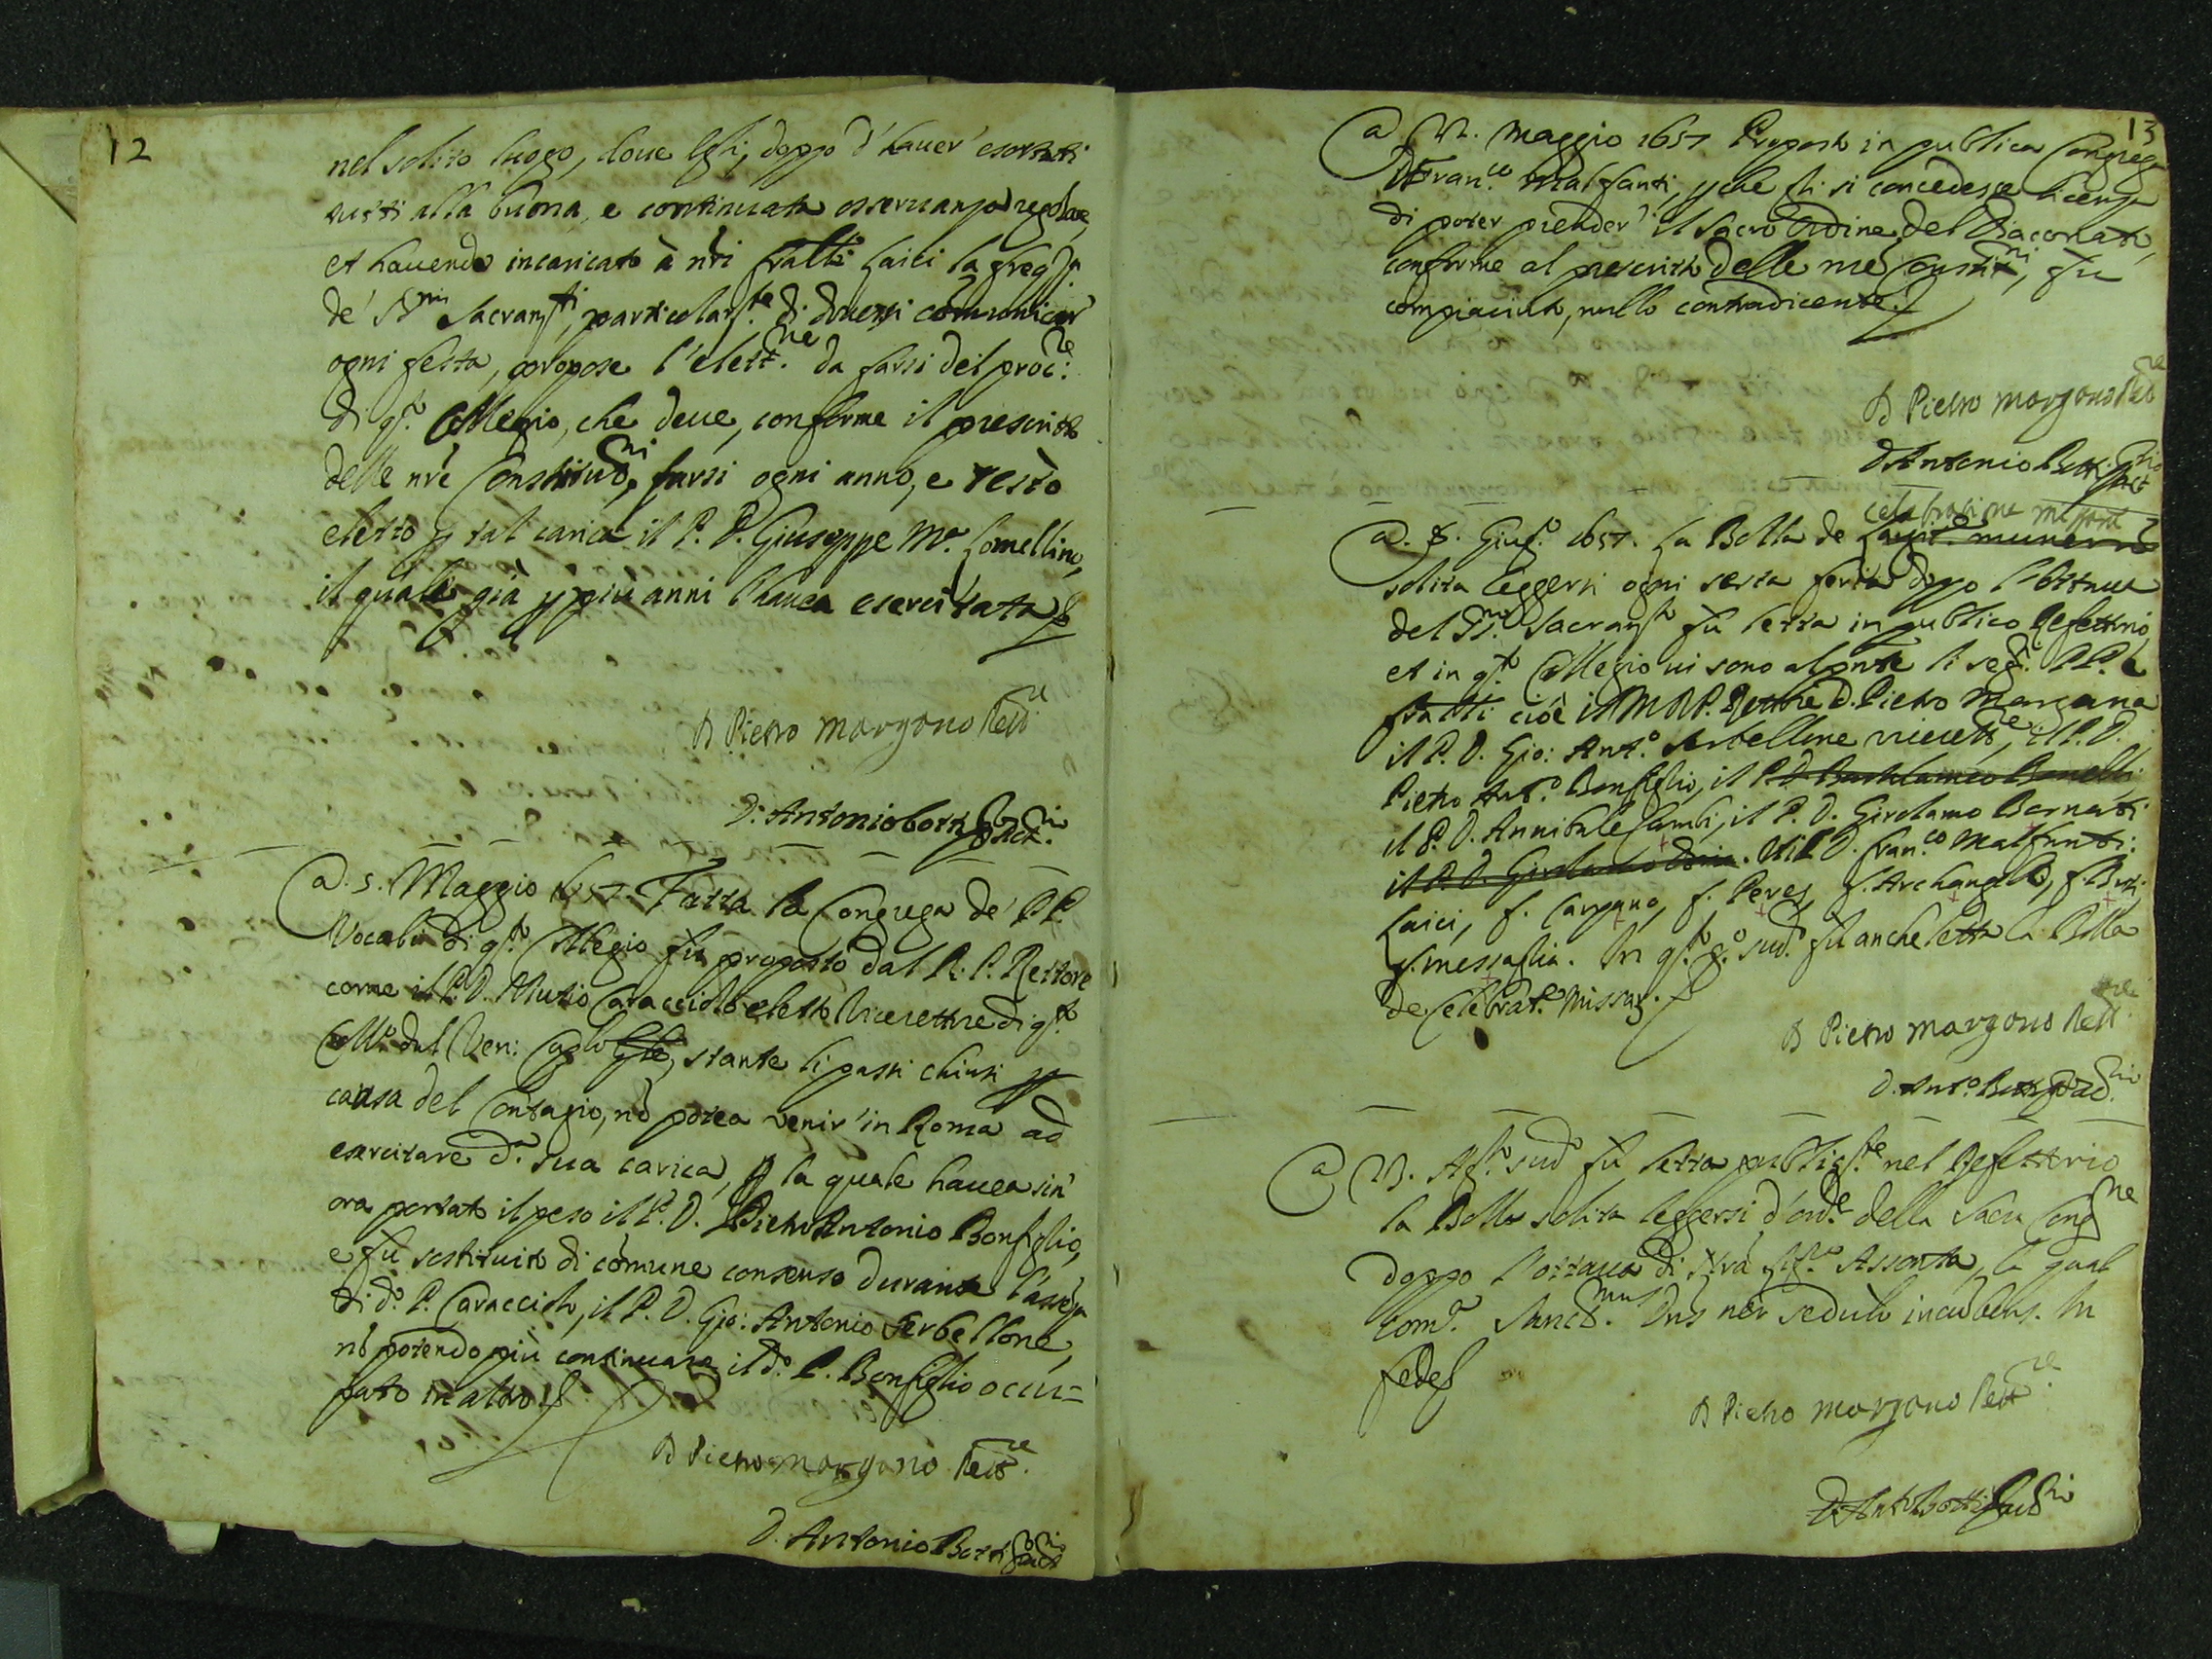 12
nel solito luogo, doue egli, doppo d'hauer' esortati
tutti alla buona, e continuata osseruanza regolare,
et hauendo incaricato à nri fratli laici la freqza
de' SSmi Sacramti, particolarmte di douersi comunicar'
ogni festa, propose l'elettne da farsi del procre:
di qto Collegio, che deue, conforme il prescritto
delle nre Constitudni, farsi ogni anno, e restò
eletto p tal carica il P. D. Giuseppe Ma. Lomellino,
il quale già p più anni l'hauea esercitata
D Pietro Margano Rettre
D: Antonio Botti
A. 5. Maggio 1657. Fatta la Congrega de' PP.
Vocali di qto Collegio fu proposto dal R. P. Rettore
come il P. D. Mutio Caracciolo eletto Vicerettore di qto
Collo dal Ven: Caplo stante li passi chiusi p
causa del Contagio, nō potea venir' in Roma ad
esercitare da. sua carica, p la quale hauea sin'
ora portato il peso il P. D. Pietro Antonio Bonfiglio,
e fu sostituito di comune consenso durante l'assenza
di do. P. Caracciolo, il P. D. Gio: Antonio Serbellone,
nō potendo più continuare il do. P. Bonfiglio occu=
pato in altro
D Pietro Margano Rettre.
D. Antonio Botti
13
A VI. Maggio 1657 Proposto in publica Congrega
D Franco Malfanti, p che gli si concedesse licenza
di poter prender' il sacro Ordine del Diaconato,
conforme al prescritto delle nre Constitni, fu
compiaciuto, nullo contradicente.
D Pietro Margano Rettre
D Antonio Botti
celebratione missarū
A. 8. Giugo 1657. La Bolla de Largit. munerū
solita leggersi ogni sesta feria doppo l'ottaua
del SSmo Sacramto fu letta in publico Refettorio,
et in qto Collegio ui sono al pnte li segti PP. e
fratlli cioè il M R P. Rettore D. Pietro Margano
il P. D. Gio: Anto. Serbellone vicerettre, il P. D.
Pietro Anto. Bonfiglio, il P. D. Bartolameo Bonelli
il P. D. Annibale, il P. D. Girolamo Bernati
il P. D. Girolamo Doria. Il P. D. Franco Malfanti:
Laici, f. Cargano, f. Perez, f. Archangelo, f.
f. Messaglia. In qto g.o sudo. fu anche letta la Bolla
de Celebrate Missar.
D Pietro Margano Rettre
D. Anto. Botti
A VI. Agto sudo fu letta publicamte nel Refettorio
la Bolla solita leggersi d'orde della Sacra Congne
doppo l'ottaua di Nra Assonta, la qual
com. Sanctmus Dns nor sedulo incūbens. In
fede
D Pietro Margano Rettre
D. Anto Botti